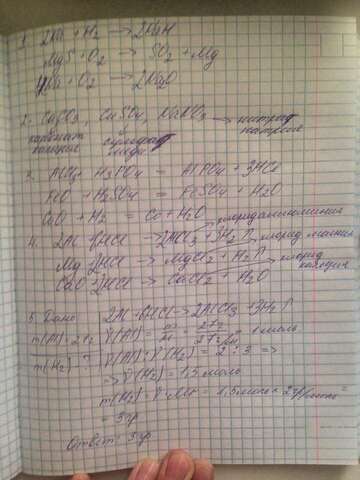 1. 2Na + H2 → 2NaH
MgS + O2 → SO2 + Mg
4Na + O2 → 2Na2O
2. CaCO3, CuSO4, NaNO3 → нитрат натрия
карбонат кальция сульфат меди
3. AlCl3 + H3PO4 = AlPO4 + 3HCl
FeO + H2SO4 = FeSO4 + H2O
CoO + H2 = Co + H2O
хлорид алюминия
4. 2Al + 6HCl → 2AlCl3 + 3H2↑
хлорид магния
Mg + 2HCl → MgCl2 + H2↑
хлорид кальция
CaO + 2HCl → CaCl2 + H2O
5. Дано 2Al + 6HCl → 2AlCl3 + 3H2↑
m(Al) = 27г ν(Al) = m/M = 27г/27г/моль = 1 моль
m(H2) ? ν(Al) : ν(H2) = 2 : 3 =>
=> ν(H2) = 1,5 моль
m(H2) = ν · M = 1,5моль × 2гр/моль =
= 3гр
Ответ: 3гр